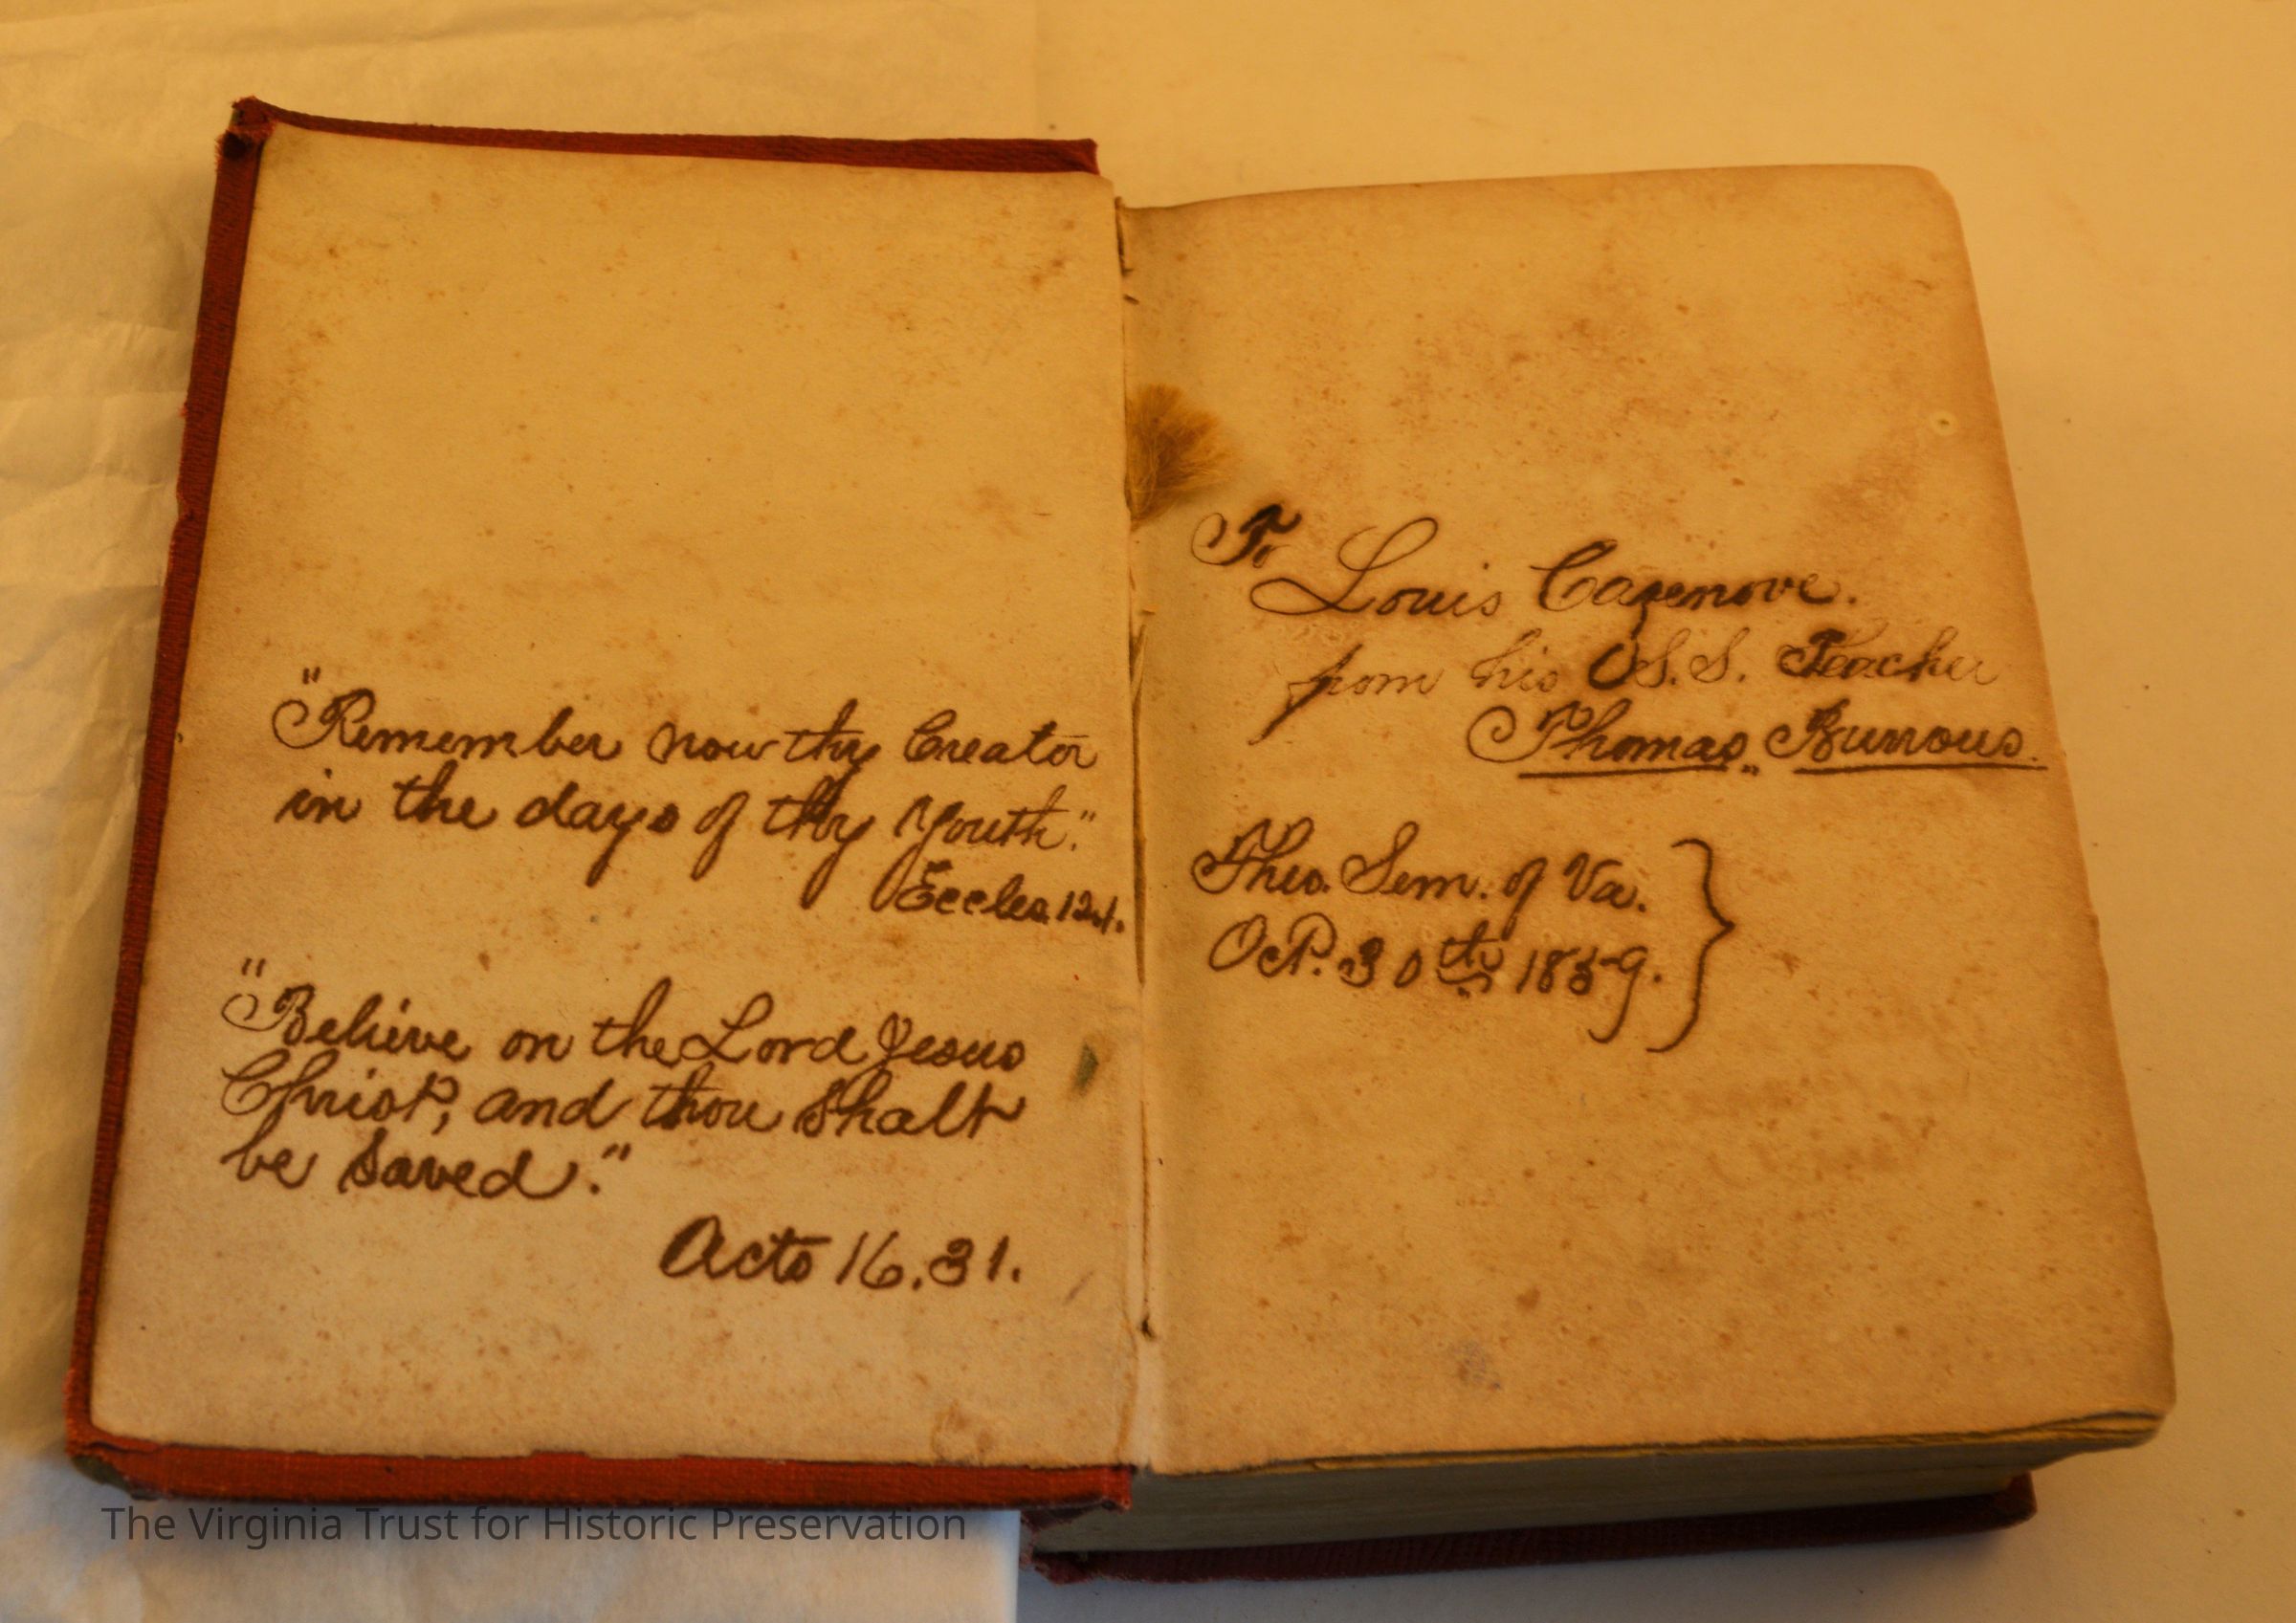 "Remember now thy Creator
in the days of thy Youth."
Eccles. 12.1.
"Believe on the Lord Jesus
Christ, and thou shalt
be saved."
Acts 16.31.
To
Louis Cazenove.
from his S.S. Teacher
Thomas Burrous.
Theo. Sem. of Va.
Oct. 30th 1859.
The Virginia Trust for Historic Preservation